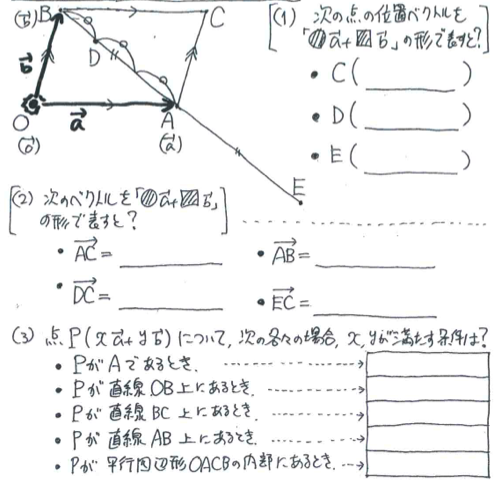 (b⃗) B C
D
b⃗
O a⃗ A
(0⃗) (a⃗)
E
(1) 次の点の位置ベクトルを
「◍a⃗+▨b⃗」の形で表すと?
• C( )
• D( )
• E( )
(2) 次のベクトルを「◍a⃗+▨b⃗」
の形で表すと?
• AC⃗ = • AB⃗ =
• DC⃗ = • EC⃗ =
(3) 点P(xa⃗+yb⃗)について, 次の各々の場合, x, yが満たす条件は?
• PがAであるとき.
• Pが直線OB上にあるとき.
• Pが直線BC上にあるとき.
• Pが直線AB上にあるとき.
• Pが平行四辺形OACBの内部にあるとき.